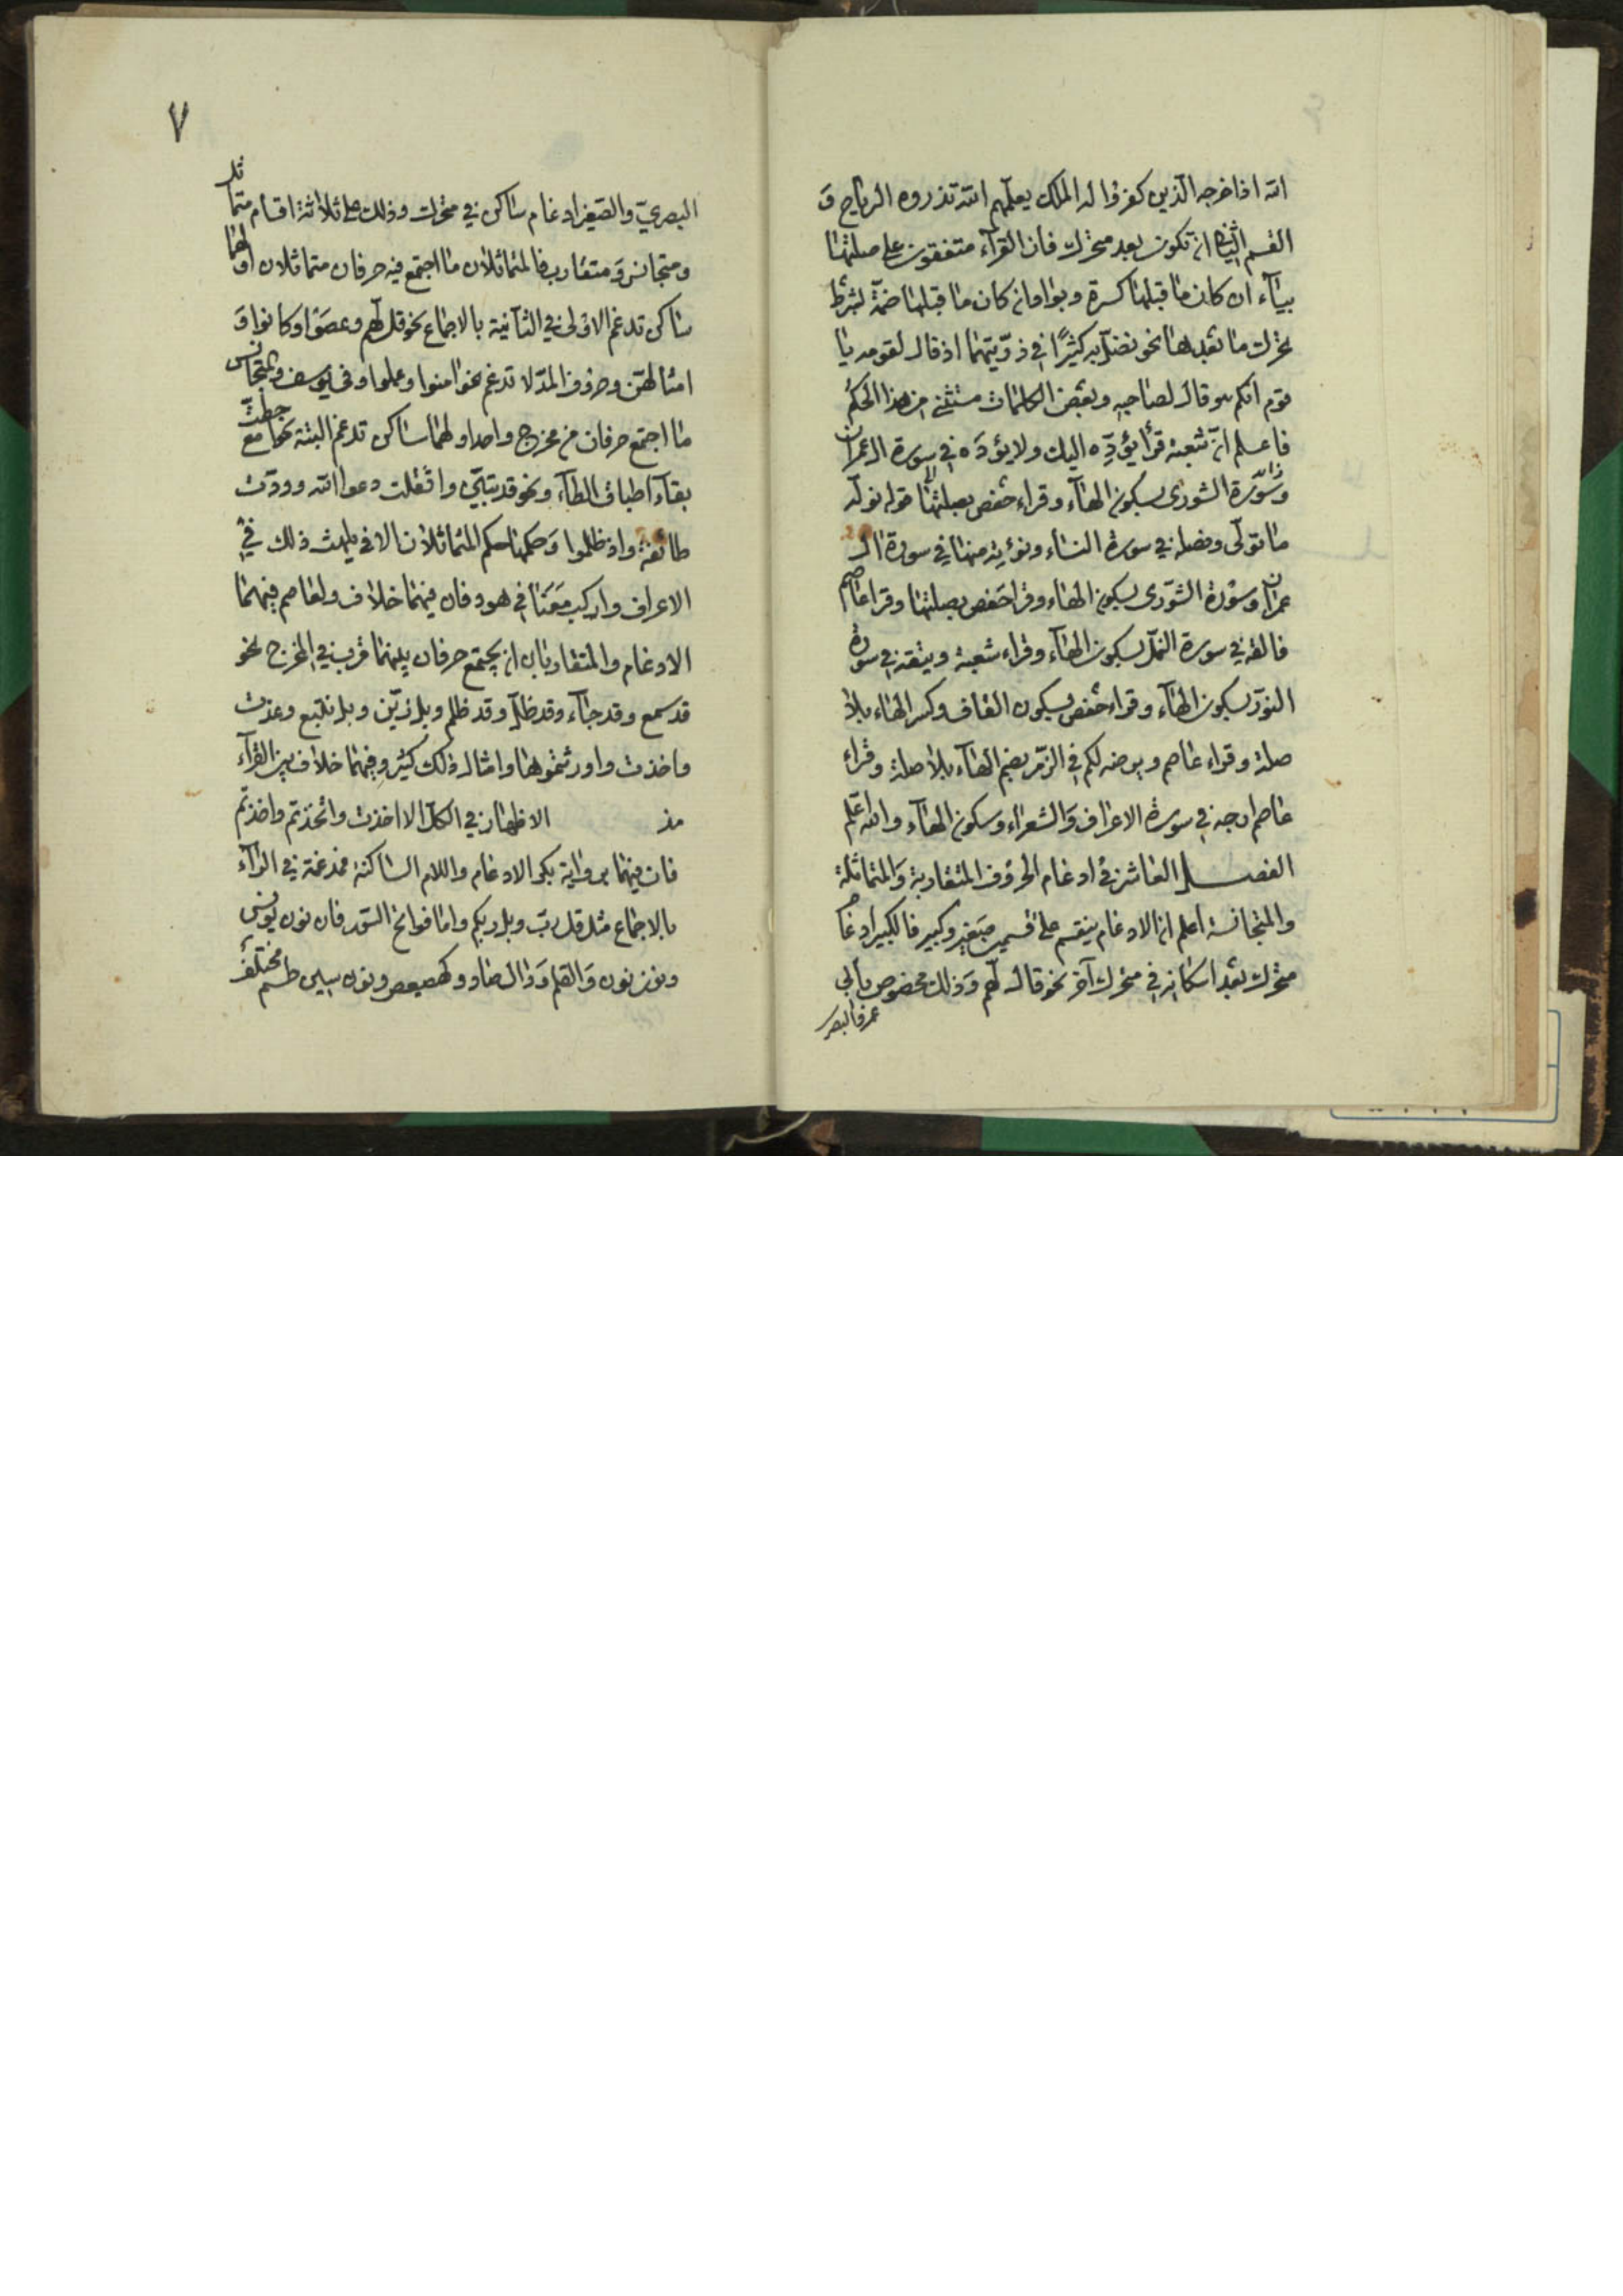 الله اذا خرجه الذين كفروا له الملك يعلمهم الله تذروه الرياح و
القسم الثاني ان تكون بعد متحرك فان القرآء متفقون على صلتها
بيآء ان كان ما قبلها كسرة وبواو ان كان ما قبلها ضمة بشرط
تحرك ما بعدها نحو يضل به كثيرًا في ذريتهما اذ قال لقومه يا
قوم انكم هو قال لصاحبه وبعض الكلمات مستثنى من هذا الحكم
فاعلم ان شعبة قرأ يؤدِّه اليك ولا يؤدّه في سورة ال عمران
وسورة الشورى بسكون الهآء وقراء حفص بصلتها قوله نوله
ما تولى ونصله في سورة النسآء ونؤته منها في سورة ال
عمران وسورة الشورى بسكون الهاء وقرا حفص بصلتها وقرا عاصم
فالقه في سورة النمل بسكون الهآء وقراء شعبة ويتقه في سورة
النور بسكون الهآء وقراء حفص بسكون القاف وكسر الهاء بلا
صلة وقراء عاصم ويرضه لكم في الزمر بضم الهآء بلا صلة وقراء
عاصم ارجه في سورة الاعراف والشعراء وسكون الهآء والله اعلم
الفصل العاشر في ادغام الحروف المتقاربة والمتماثلة
والمتجانسة اعلم ان الادغام ينقسم على قسمين صغير وكبير فالكبير ادغام
متحرك بعد اسكانه في متحرك آخر نحو قال لهم وذلك مخصوص بابي
عمرو البصر
٧
البصريّ والصغير ادغام ساكن في متحرك وذلك على ثلاثة اقسام متماثل
ومتجانس ومتقارب فالمتماثلان ما اجتمع فيه حرفان متماثلان اولهما
ساكن تدغم الاولى في الثانية بالاجماع نحو قل لهم وعصوا وكانوا و
امثالهن وحروف المد لا تدغم نحو امنوا وعملوا وفي يوسف والمتجانس
ما اجتمع حرفان من مخرج واحد اولهما ساكن تدغم البتة نحو احطت مع
بقآء اطباق الطآء ونحو قد تبيّن واثقلت دعوا الله وودّت
طائفة واذ ظلموا وحكمها حكم المتماثلان الا في يلهث ذلك في
الاعراف واركب معنا في هود فان فيهما خلاف ولعاصم فيهما
الادغام والمتقاربان ان يجتمع حرفان بينهما قرب في المخرج نحو
قد سمع وقد جآء وقد ضل وقد ظلم وبل زيّن وبل نتبع وعذت
واخذت واورثتموها وامثال ذلك كثير وفيهما خلاف بين القرآء
مذ الاظهار في الكل الا اخذت واتخذتم واخذتم
فان فيهما برواية بكر الادغام واللام الساكنة مدغمة في الرآء
بالاجماع مثل قل رب وبل ربكم واما فواتح السور فان نون يونس
ونون نون والقلم ودال صاد وكهيعص ونون سين طسم مختلفة